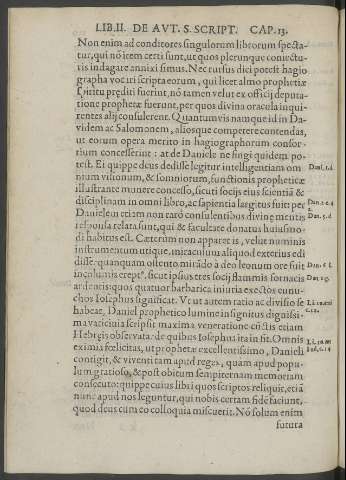 LIB.II. DE AVT. S. SCRIPT. CAP.13.
Non enim ad conditores singulorum librorum specta-
tur, qui nō item certi sunt, ut quos plerunque coniectu-
ris indagare annixi simus. Nec rursus dici potest hagio
grapha vocari scripta eorum, qui licet almo prophetiæ
spiritu præditi fuerint, nō tamen velut ex officij deputa-
tione prophetæ fuerunt, per quos divina oracula inqui-
rentes alij consulerent. Quantumvis namque id in Da-
videm ac Salomonem, aliosque competere contendas,
ut eorum opera merito in hagiographorum consor-
tium concesserint: at de Daniele ne fingi quidem po-
test. Ei quippe deus dedisse legitur intelligentiam om- Dan. 1. d
nium visionum, & somniorum, functionis propheticæ
illustrante munere concesso, sicuti socijs eius scientiā &
disciplinam in omni libro, ac sapientia largitus fuit per Dan. 2. c. d
Danielem etiam non raro consulentibus divinæ mentis Dan. 5. d
responsa relata sunt, qui & facultate donatus huiusmo-
di habitus est. Cæterum non apparet is, velut numinis
instrumentum utique, miraculum aliquod exterius edi
disse: quanquam ostento mirādo à deo leonum ore fuit
incolumis erept°, sicut ipsius tres socij flammis fornacis
ardentis: quos quatuor barbarica iniuria exectos eunu-
chos Iosephus significat. Ut ut autem ratio ac divisio se
habeat, Daniel prophetico lumine insignitus dignissi-
ma vaticinia scripsit maxima veneratione cūctis etiam
Hebreis observata: de quibus Iosephus ita infit. Omnis
eximia felicitas, ut prophetæ excellentissimo, Danieli
contigit, & viventi tam apud reges, quam apud popu-
lum gratioso, & post obitum sempiternam memoriam
consecuto: quippe cuius libri quos scriptos reliquit, etiā
nunc apud nos leguntur, qui nobis certam fidé faciunt,
quod deus cum eo colloquia miscuerit. Nō solum enim
futura